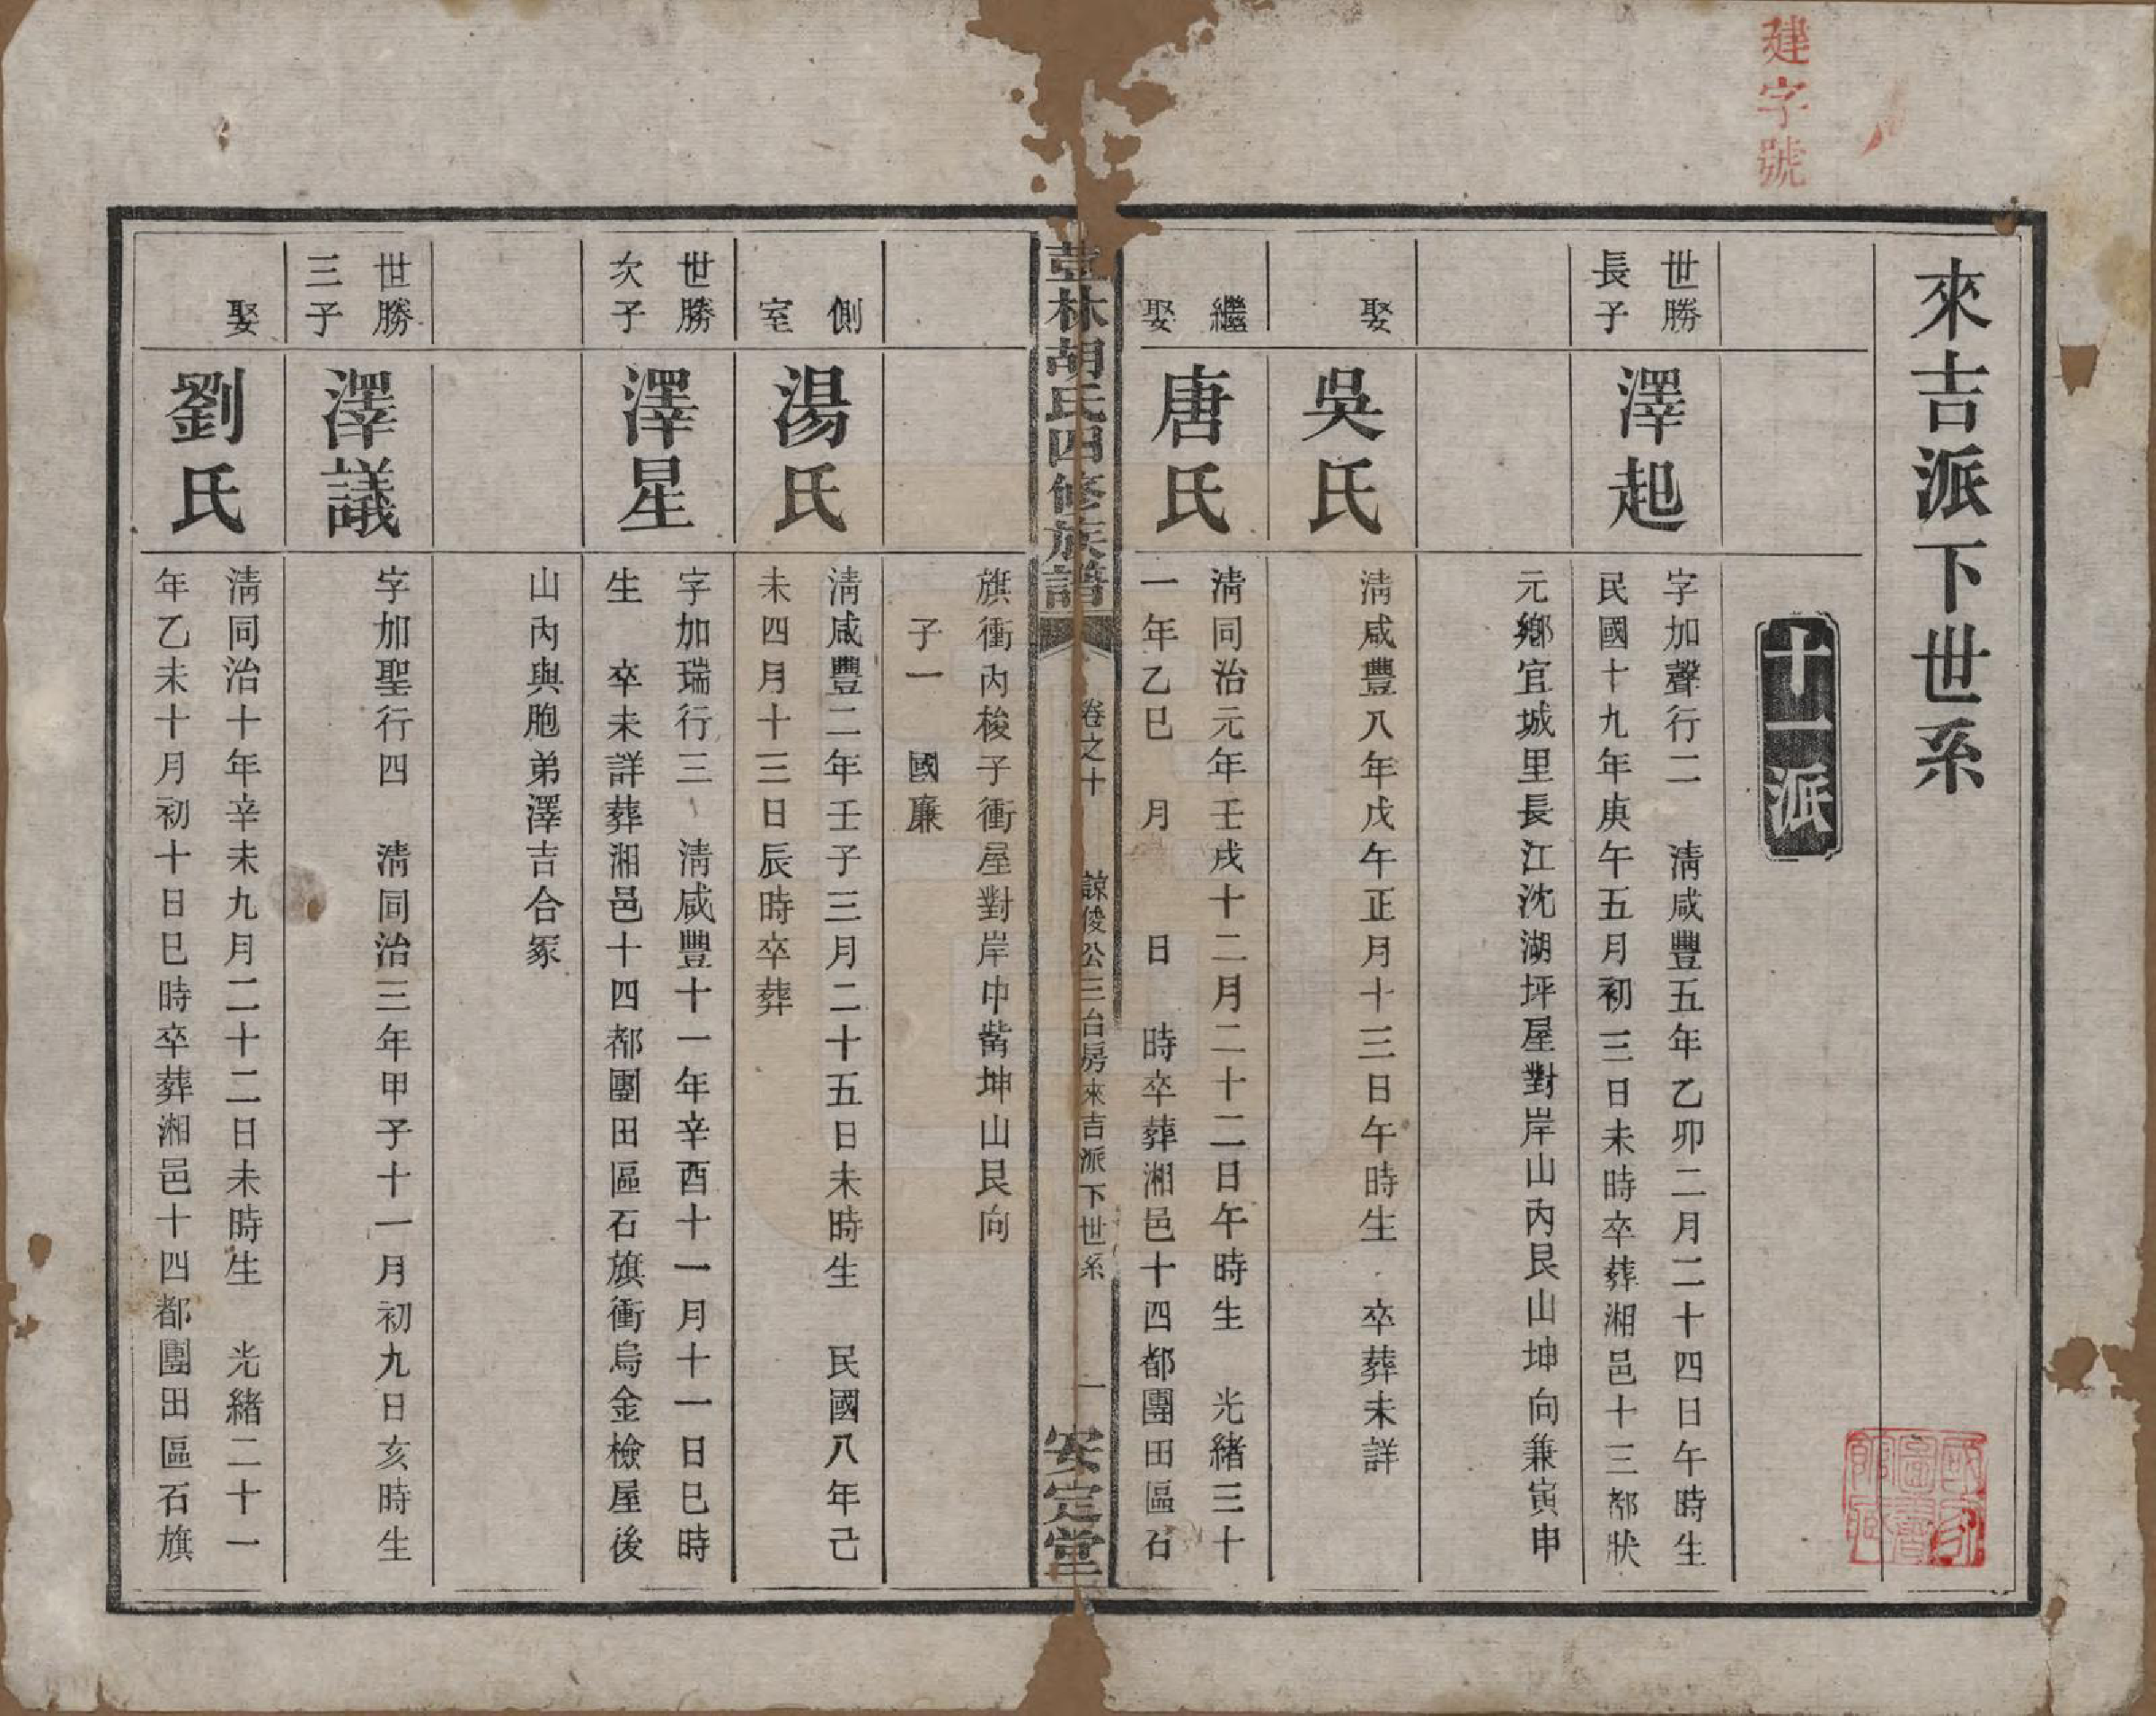 建字號
來吉派下世系
十一派
世勝
長子
澤起
字加聲行二　淸咸豐五年乙卯二月二十四日午時生
民國十九年庚午五月初三日未時卒葬湘邑十三都狀
元鄉宜城里長江沈湖坪屋對岸山內艮山坤向兼寅申
娶
吳氏
淸咸豐八年戊午正月十三日午時生　卒葬未詳
繼
娶
唐氏
淸同治元年壬戌十二月二十二日午時生　光緒三十
一年乙巳　月　　日　時卒葬湘邑十四都團田區石
林胡氏四修族譜
卷之十
諒俊公三台房來吉派下世系
一
安定堂
旗衝內梭子衝屋對岸中嘴坤山艮向
子一　國廉
側
室
湯氏
淸咸豐二年壬子三月二十五日未時生　民國八年己
未四月十三日辰時卒葬
世勝
次子
澤星
字加瑞行三　淸咸豐十一年辛酉十一月十一日巳時
生　卒未詳葬湘邑十四都團田區石旗衝烏金檢屋後
山內與胞弟澤吉合冢
世勝
三子
澤議
字加聖行四　淸同治三年甲子十一月初九日亥時生
娶
劉氏
淸同治十年辛未九月二十二日未時生　光緒二十一
年乙未十月初十日巳時卒葬湘邑十四都團田區石旗
國家圖書館藏